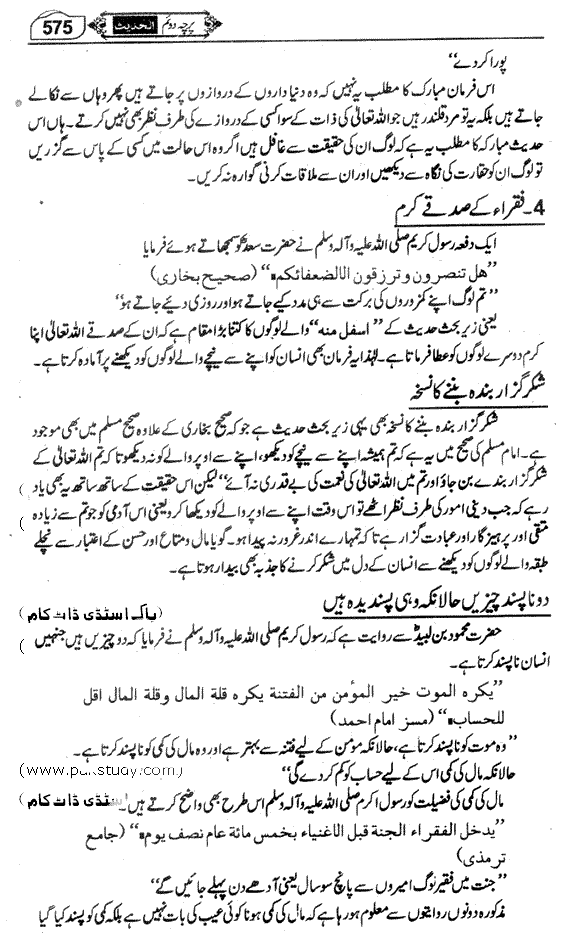 575 الحدیث پرچہ دوئم
پورا کر دے‘‘
اس فرمان مبارک کا مطلب یہ نہیں کہ وہ دنیا داروں کے دروازوں پر جاتے ہیں پھر وہاں سے نکالے
جاتے ہیں بلکہ یہ تو مرد قلندر ہیں جو اللہ تعالیٰ کی ذات کے سوا کسی کے دروازے کی طرف نظر بھی نہیں کرتے۔ ہاں اس
حدیث مبارکہ کا مطلب یہ ہے کہ لوگ ان کی حقیقت سے غافل ہیں اگر وہ اس حالت میں کسی کے پاس سے گزریں
تو لوگ ان کو حقارت کی نگاہ سے دیکھیں اور ان سے ملاقات کرنی گوارہ نہ کریں۔
4۔ فقراء کے صدقے کرم
ایک دفعہ رسول کریم صلی اللہ علیہ وآلہ وسلم نے حضرت سعدؓ کو سمجھاتے ہوئے فرمایا
’’هل تنصرون وترزقون الالضعفائكم۔‘‘ (صحیح بخاری)
’’تم لوگ اپنے کمزوروں کی برکت سے ہی مدد کیے جاتے ہو اور روزی دیئے جاتے ہو‘‘
یعنی زیر بحث حدیث کے ’’اسفل منه‘‘ والے لوگوں کا کتنا بڑا مقام ہے کہ ان کے صدقے اللہ تعالیٰ اپنا
کرم دوسرے لوگوں کو عطا فرماتا ہے۔ لہٰذا یہ فرمان بھی انسان کو اپنے سے نیچے والے لوگوں کو دیکھنے پر آمادہ کرتا ہے۔
شکر گزار بندہ بننے کا نسخہ
شکر گزار بندہ بننے کا نسخہ بھی یہی زیر بحث حدیث ہے جو کہ صحیح بخاری کے علاوہ صحیح مسلم میں بھی موجود
ہے۔ امام مسلم کی صحیح میں یہ ہے کہ تم ہمیشہ اپنے سے نیچے کو دیکھو، اپنے سے اوپر والے کو نہ دیکھو تا کہ تم اللہ تعالیٰ کے
شکر گزار بندے بن جاؤ اور تم میں اللہ تعالیٰ کی نعمت کی بے قدری نہ آئے‘‘ لیکن اس حقیقت کے ساتھ ساتھ یہ بھی یاد
رہے کہ جب دینی امور کی طرف نظر اٹھے تو اس وقت اپنے سے اوپر والے کو دیکھا کرو یعنی اس آدمی کو جو تم سے زیادہ
متقی اور پرہیز گار اور عبادت گزار ہے تا کہ تمہارے اندر غرور نہ پیدا ہو۔ گویا مال و متاع اور حسن کے اعتبار سے نچلے
طبقہ والے لوگوں کو دیکھنے سے انسان کے دل میں شکر کرنے کا جذبہ بھی بیدار ہوتا ہے۔
دو ناپسند چیزیں حالانکہ وہی پسندیدہ ہیں
(پاک اسٹڈی ڈاٹ کام)
حضرت محمود بن لبیدؓ سے روایت ہے کہ رسول کریم صلی اللہ علیہ وآلہ وسلم نے فرمایا کہ دو چیزیں ہیں جنہیں
انسان ناپسند کرتا ہے۔
’’يكره الموت خير المؤمن من الفتنة يكره قلة المال وقلة المال اقل
للحساب۔‘‘ (مسز امام احمد)
’’وہ موت کو ناپسند کرتا ہے، حالانکہ مومن کے لیے فتنہ سے بہتر ہے اور وہ مال کی کمی کو ناپسند کرتا ہے۔
حالانکہ مال کی کمی اس کے لیے حساب کو کم کر دے گی‘‘
(www.pakstudy.com)
مال کی کمی کی فضیلت کو رسول اکرم صلی اللہ علیہ وآلہ وسلم اس طرح بھی واضح کرتے ہیں۔
اسٹڈی ڈاٹ کام)
’’يدخل الفقراء الجنة قبل الاغنياء بخمس مائة عام نصف يوم۔‘‘ (جامع
ترمذی)
’’جنت میں فقیر لوگ امیروں سے پانچ سو سال یعنی آدھے دن پہلے جائیں گے‘‘
مذکورہ دونوں روایتوں سے معلوم ہو رہا ہے کہ مال کی کمی ہونا کوئی عیب کی بات نہیں ہے بلکہ کمی کو پسند کیا گیا